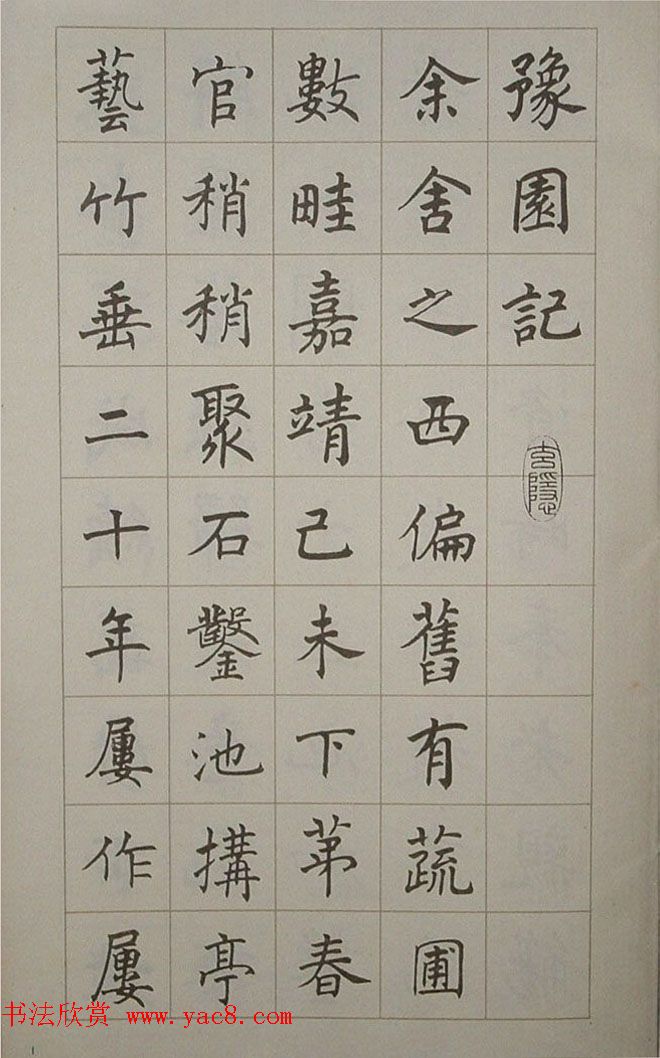 豫園記
余舍之西偏舊有蔬圃
數畦嘉靖己未下苐春
官稍稍聚石鑿池搆亭
藝竹垂二十年屢作屢
书法欣赏 www.yac8.com
1